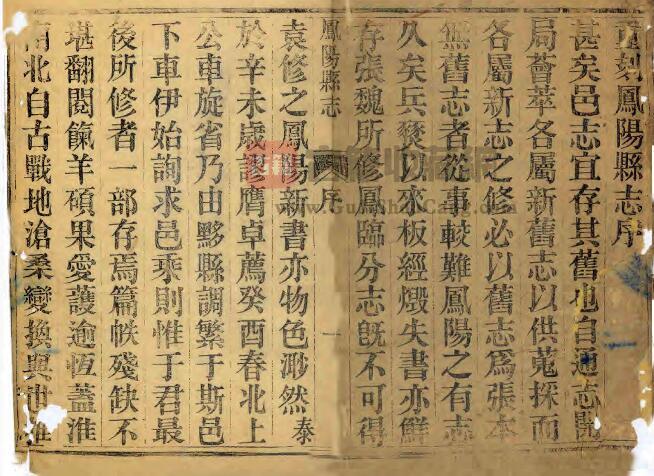 重刻鳳陽縣志序
甚矣邑志宜存其舊也自通志開
局薈萃各屬新舊志以供蒐採而
各屬新志之修必以舊志為張本
無舊志者從事較難鳳陽之有志
久矣兵燹以來板經燬失書亦鮮
存張魏所修鳳臨分志既不可得
鳳陽縣志 序 一
袁修之鳳陽新書亦物色渺然泰
於辛未歲謬膺卓薦癸酉春北上
公車旋省乃由黟縣調繁于斯邑
下車伊始詢求邑乘則惟于君最
後所修者一部存焉篇帙殘缺不
堪翻閱餼羊碩果愛護逾恆蓋淮
南北自古戰地滄桑變換與他